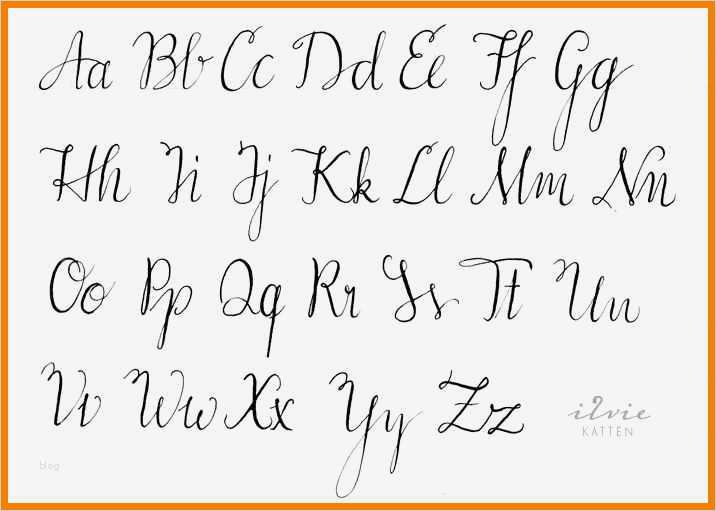 Aa Bb Cc Dd Ee Ff Gg
Hh Ii Jj Kk Ll Mm Nn
Oo Pp Qq Rr Ss Tt Uu
Vv Ww Xx Yy Zz
ilvie
KATTEN
blog